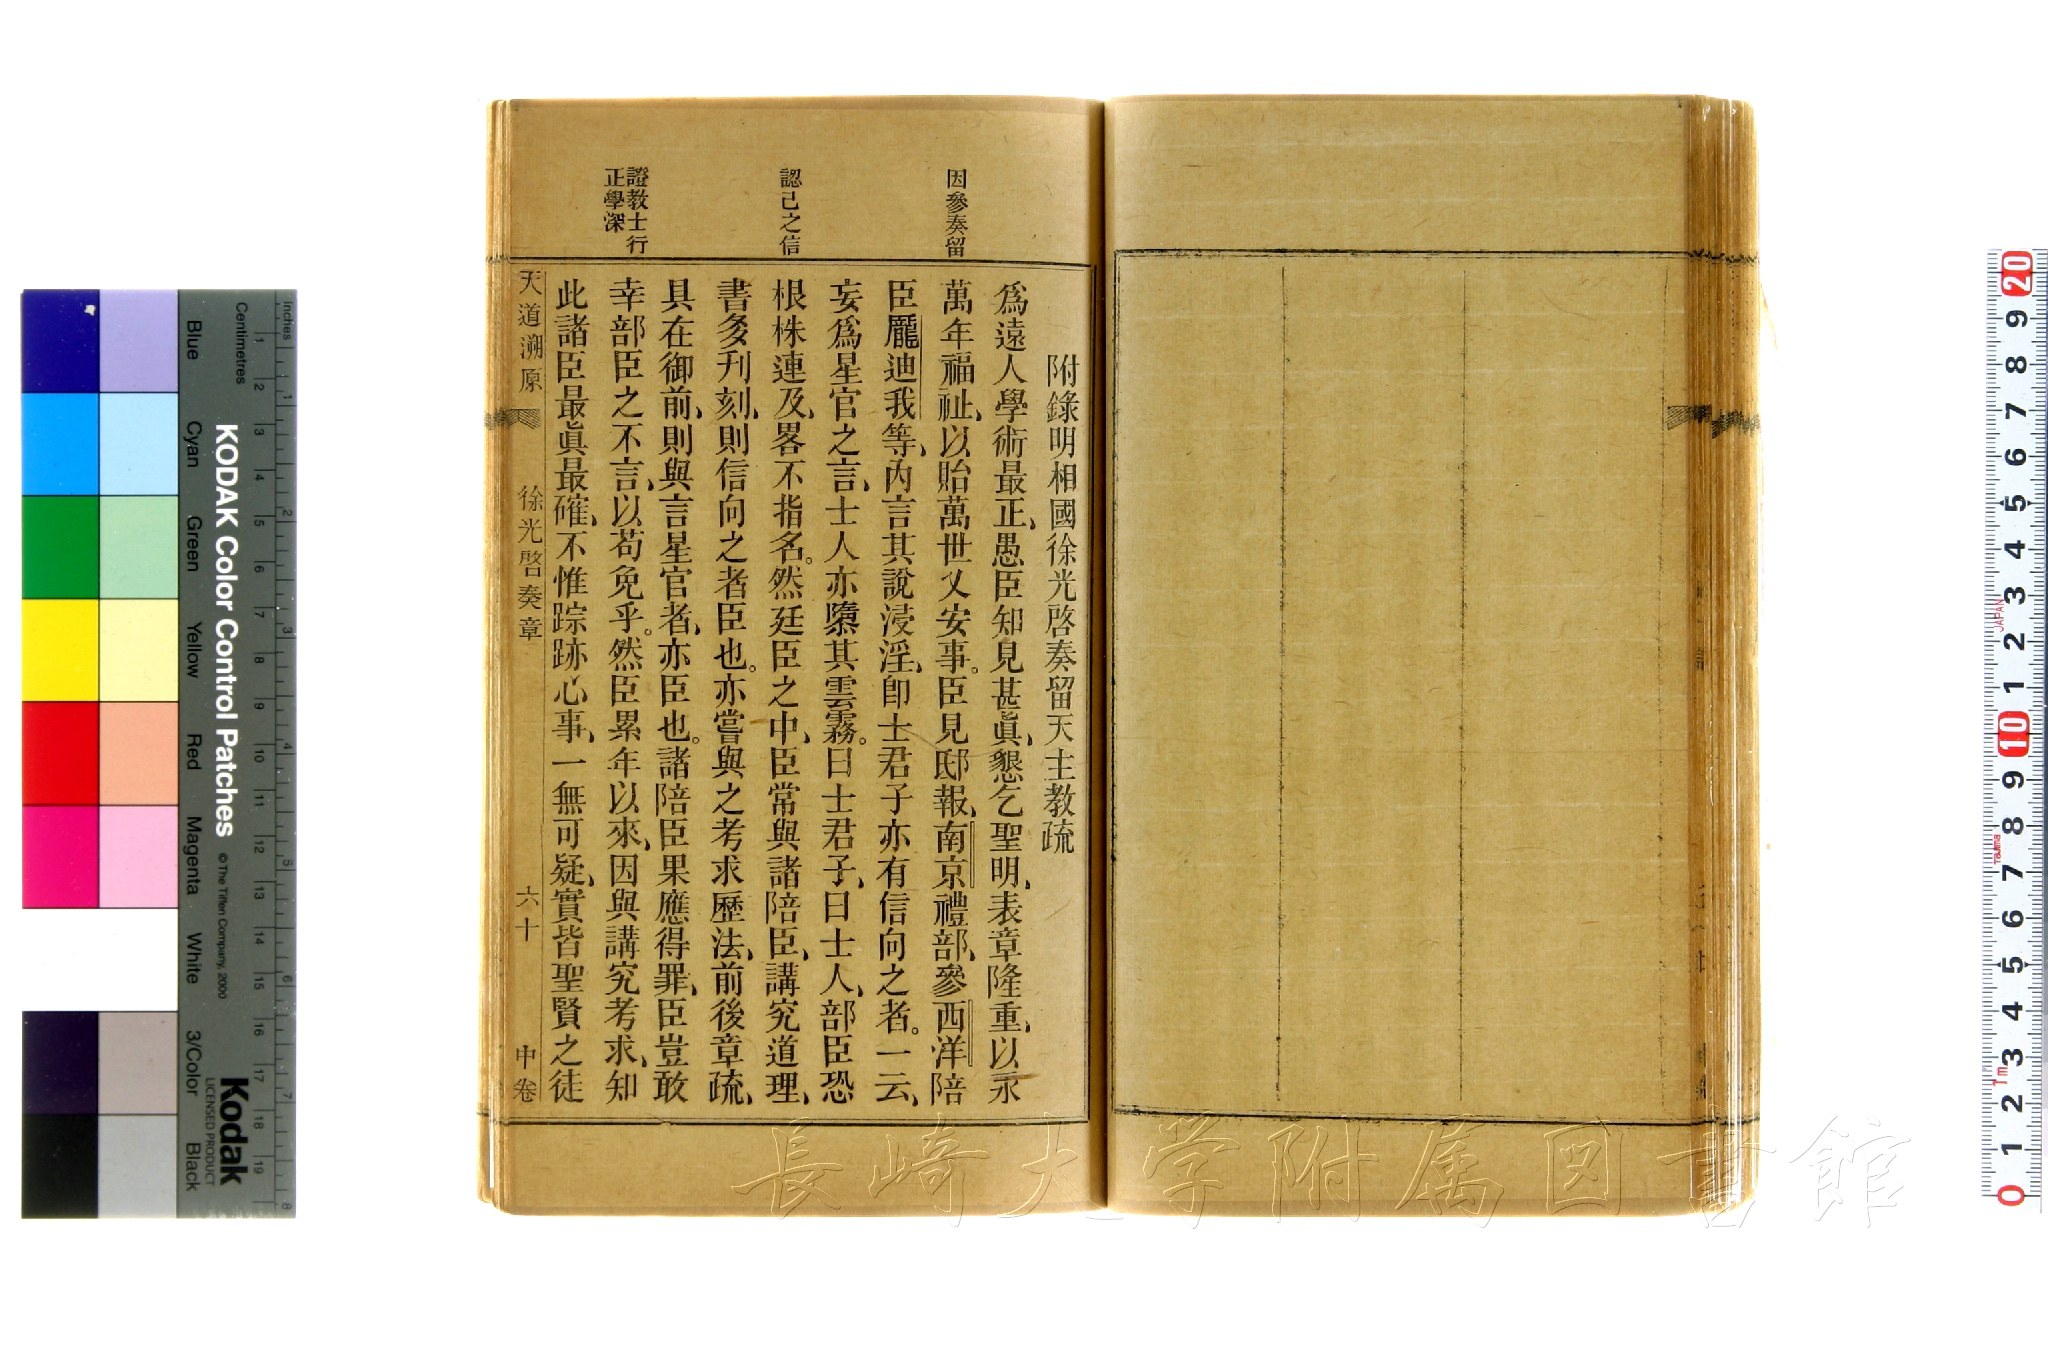 附錄明相國徐光啓奏留天主教疏
爲遠人學術最正、愚臣知見甚眞、懇乞聖明、表章隆重、以永
萬年福祉、以貽萬世乂安事。臣見邸報、南京禮部、參西洋陪
臣龐迪我等、內言其說浸淫、卽士君子亦有信向之者。一云、
妄爲星官之言、士人亦墮其雲霧。曰士君子、曰士人、部臣恐
根株連及、畧不指名。然廷臣之中、臣常與諸陪臣、講究道理、
書多刋刻、則信向之者臣也。亦嘗與之考求歷法、前後章疏、
具在御前、則與言星官者、亦臣也。諸陪臣果應得罪、臣豈敢
幸部臣之不言、以苟免乎。然臣累年以來、因與講究考求、知
此諸臣最眞最確、不惟踪跡心事、一無可疑、實皆聖賢之徒
因參奏留
認己之信
證教士行
正學深
天道溯原 徐光啓奏章 六十 中卷
長崎大学附属図書館
KODAK Color Control Patches
© The Tiffen Company, 2000
Kodak
LICENSED PRODUCT
Inches
Centimetres
Blue Cyan Green Yellow Red Magenta White 3/Color Black
1 2 3 4 5 6 7 8 9 10 11 12 13 14 15 16 17 18 19
1 2 3 4 5 6 7 8
20 9 8 7 6 5 4 3 2 1 10 9 8 7 6 5 4 3 2 1 0
JAPAN
Tajima